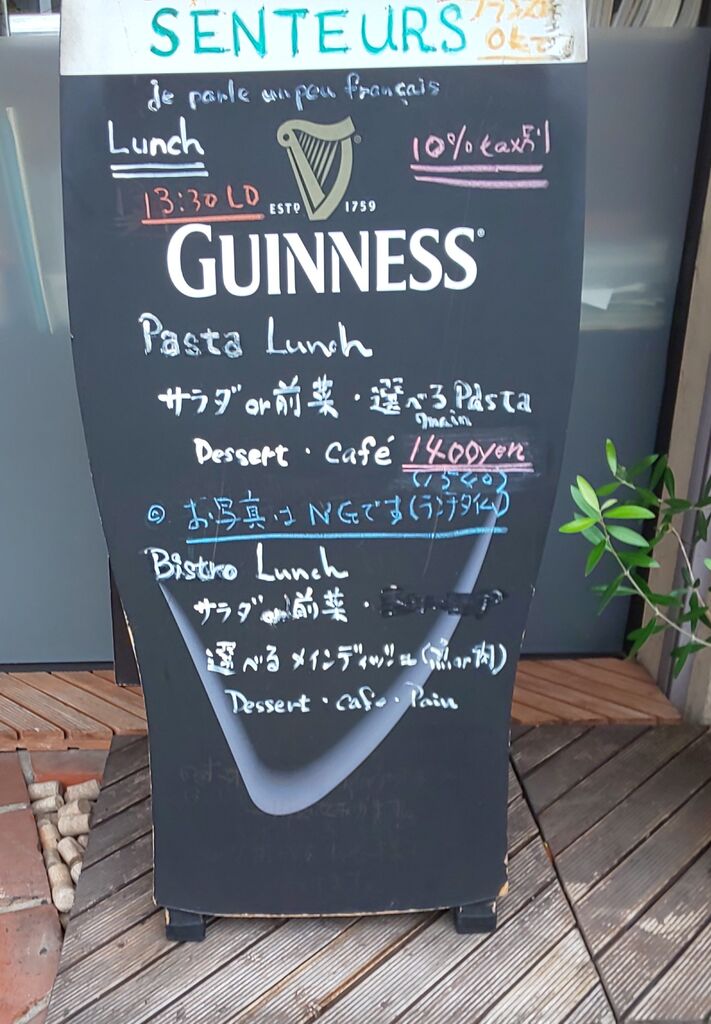 SENTEURS
OKです
je parle un peu français
Lunch
10% tax別
13:30 LO
ESTD 1759
GUINNESS
Pasta Lunch
サラダ or 前菜・選べるPasta
1main
Dessert・Café 1400yen
(1540)
◎ お写真はNGです(ランチタイム)
Bistro Lunch
サラダ or 前菜・
選べるメインディッシュ(魚or肉)
Dessert・cafe・Pain